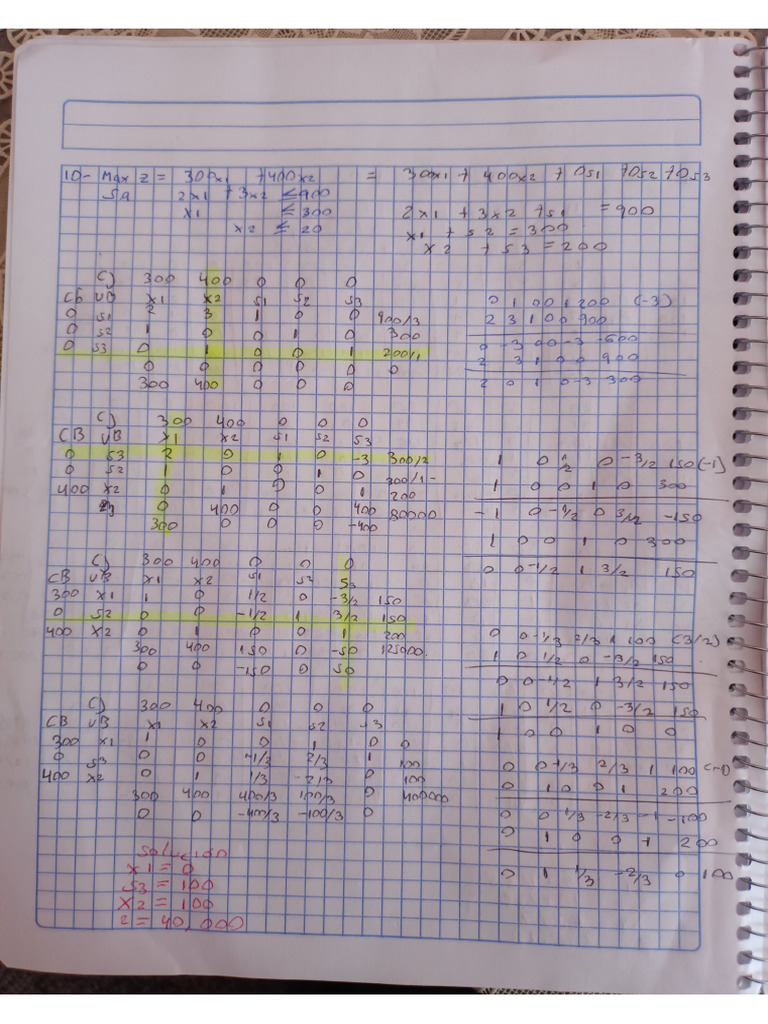 10- Max z = 300x1 +400x2 = 300x1 + 400x2 + 0s1 +0s2 +0s3
Sa 2x1 +3x2 ≤900
x1 ≤300
x2 ≤ 20
2x1 + 3x2 +s1 =900
x1 + s2 = 300
x2 + s3 = 200
CJ 300 400 0 0 0
CB VB x1 x2 s1 s2 s3
0 s1 2 3 1 0 0 900/3
0 s2 1 0 0 1 0 300
0 s3 0 1 0 0 1 200/1
0 0 0 0 0 0
300 400 0 0 0
0 1 0 0 1 200 (-3)
2 3 1 0 0 900
0 -3 0 0 -3 -600
2 3 1 0 0 900
2 0 1 0 -3 300
CJ 300 400 0 0 0
CB VB x1 x2 s1 s2 s3
0 s3 2 0 1 0 -3 300/2
0 s2 1 0 0 1 0 300/1-
400 x2 0 1 0 0 1 200
z3 0 400 0 0 400 80000
300 0 0 0 -400
1 0 1/2 0 -3/2 150(-1)
1 0 0 1 0 300
-1 0 -1/2 0 3/2 -150
1 0 0 1 0 300
0 0 -1/2 1 3/2 150
CJ 300 400 0 0 0
CB VB x1 x2 s1 s2 s3
300 x1 1 0 1/2 0 -3/2 150
0 s2 0 0 -1/2 1 3/2 150
400 x2 0 1 0 0 1 200
300 400 150 0 -50 125000
0 0 -150 0 50
0 0 -1/3 2/3 1 100 (3/2)
1 0 1/2 0 -3/2 150
0 0 -1/2 1 3/2 150
1 0 1/2 0 -3/2 150
1 0 0 1 0 0
CJ 300 400 0 0 0
CB VB x1 x2 s1 s2 s3
300 x1 1 0 0 1 0 0
0 s3 0 0 -1/3 2/3 1 100
400 x2 0 1 1/3 -2/3 0 100
300 400 400/3 100/3 0 400000
0 0 -400/3 -100/3 0
0 0 -1/3 2/3 1 100 (-1)
0 1 0 0 1 200
0 0 1/3 -2/3 -1 -100
0 1 0 0 1 200
0 1 1/3 -2/3 0 100
Solución
x1 = 0
s3 = 100
x2 = 100
z = 40,000